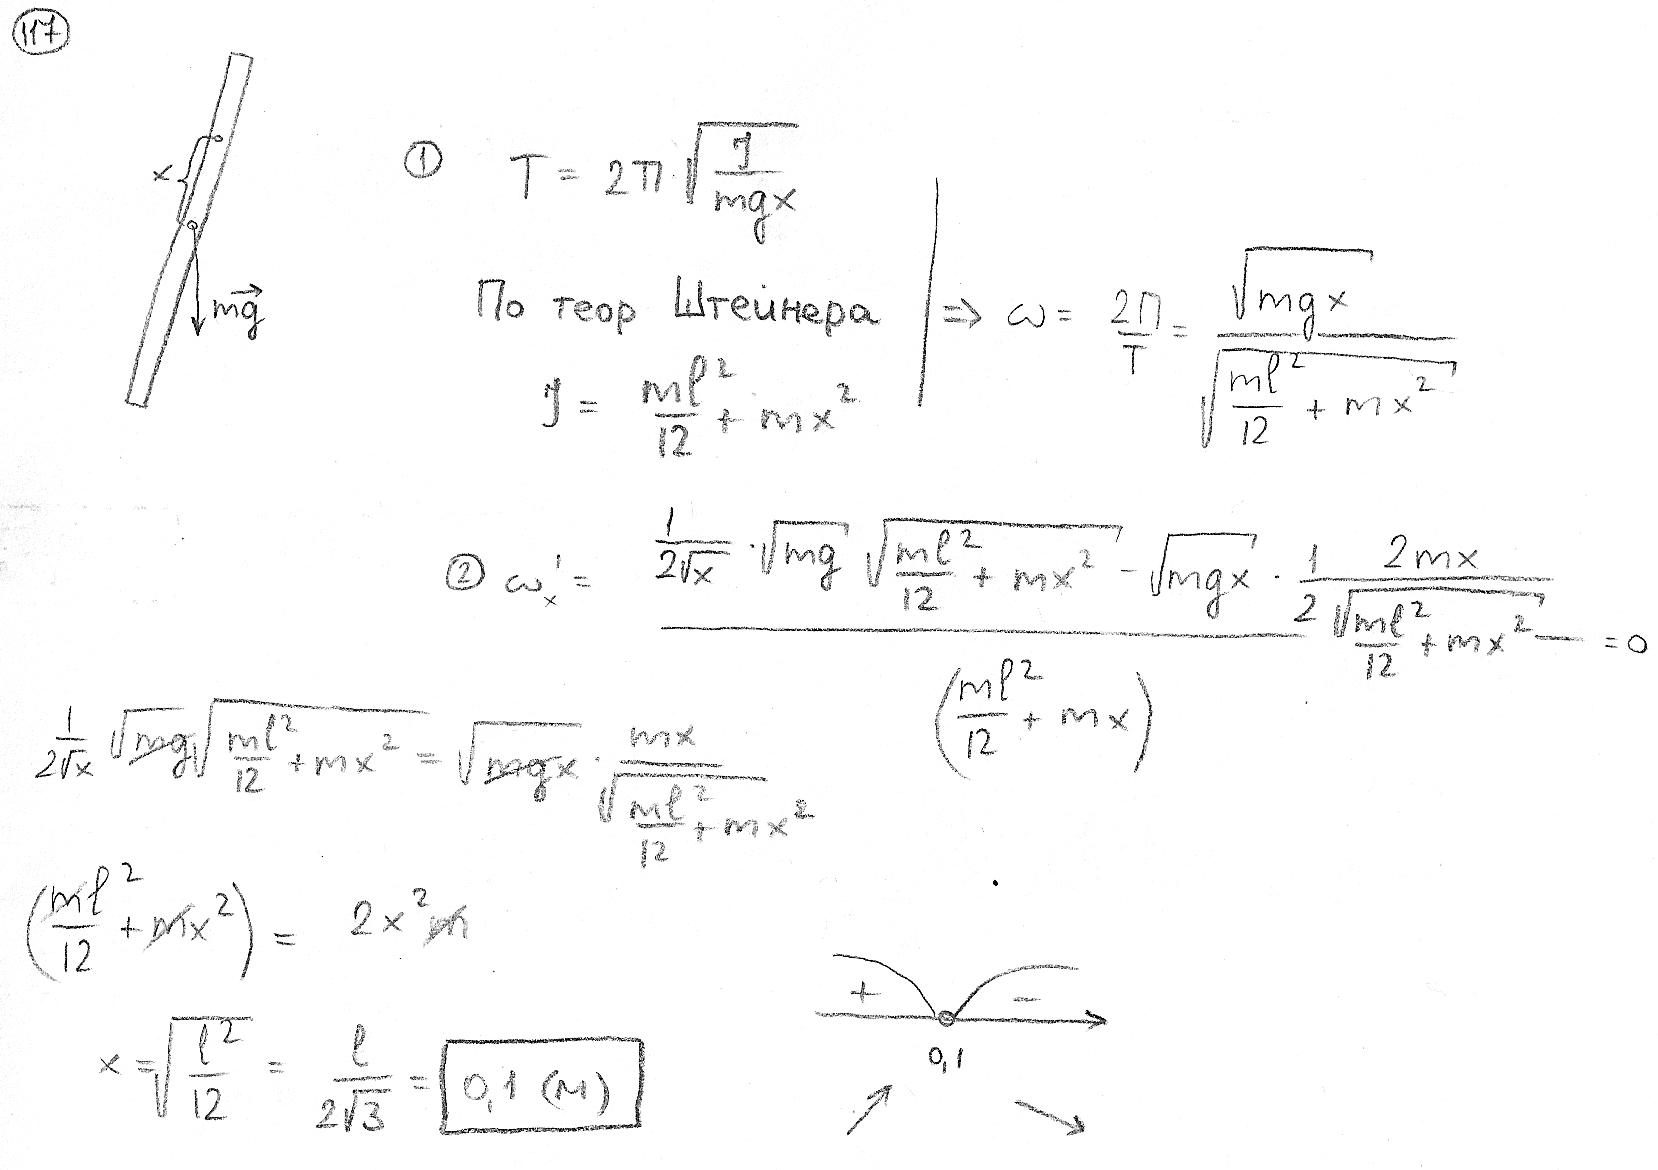 117
x
mg⃗
① T = 2π·√(J/(mgx))
По теор Штейнера
J = ml²/12 + mx²
⇒ ω = 2π/T = √(mgx)/√(ml²/12 + mx²)
② ω'ₓ = (1/(2√x)·√(mg) √(ml²/12 + mx²) - √(mgx)·1/2 2mx/√(ml²/12 + mx²))/(ml²/12 + mx) = 0
1/(2√x) √(mg) √(ml²/12 + mx²) = √(mgx)·mx/√(ml²/12 + mx²)
(ml²/12 + mx²) = 2x²m
x = √(l²/12) = l/(2√3) = 0,1 (м)
+ -
0,1